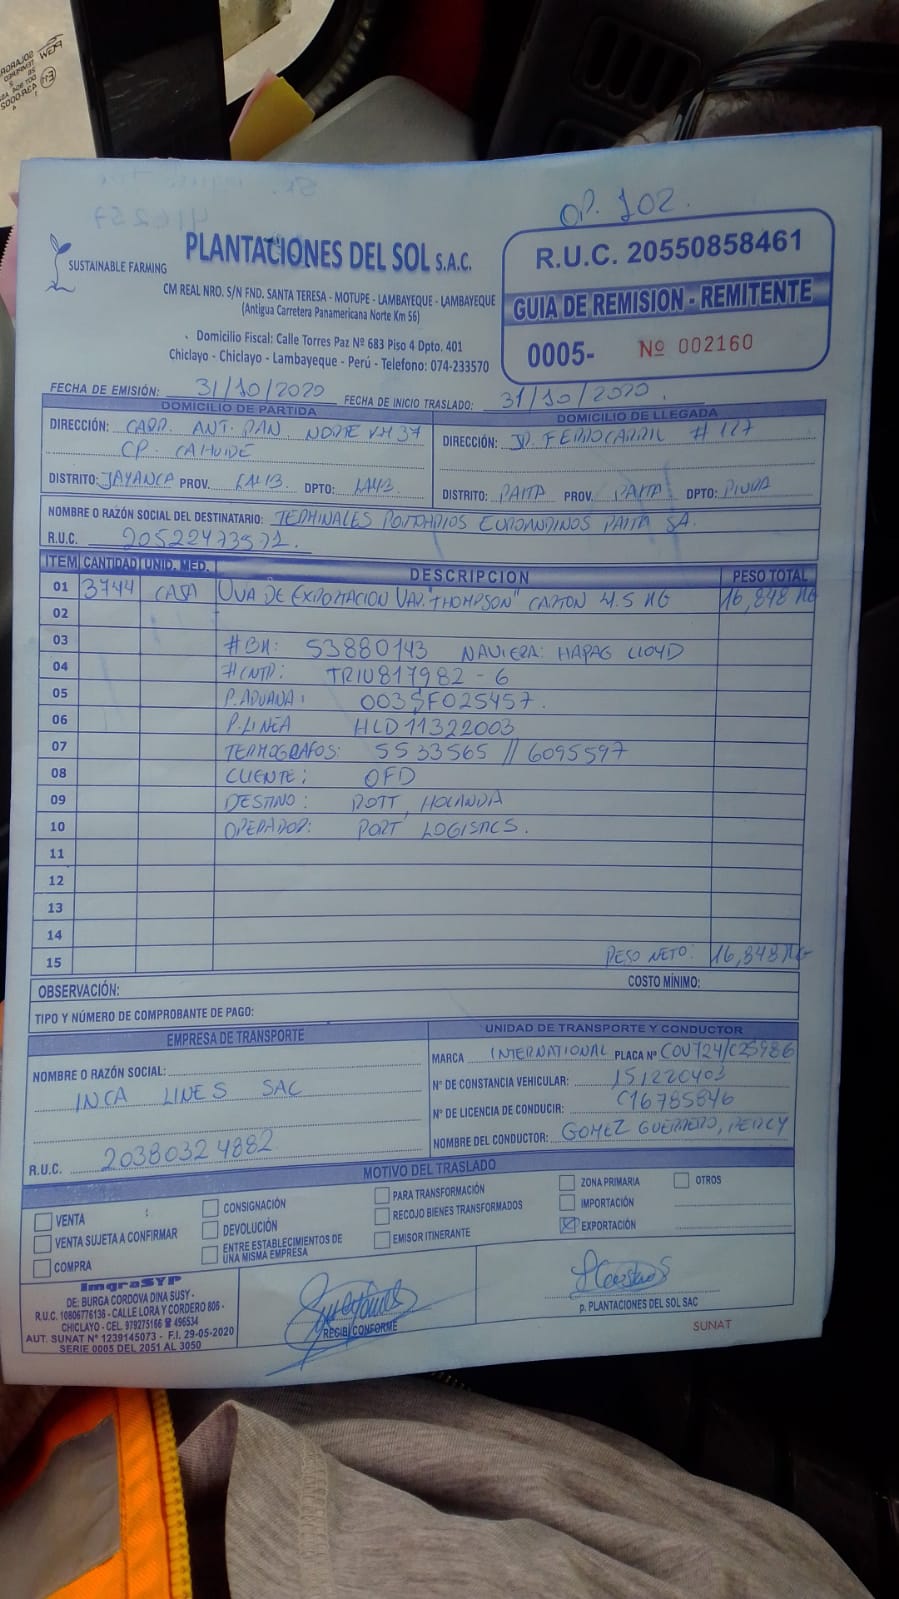 OP. 102.
SUSTAINABLE FARMING
PLANTACIONES DEL SOL S.A.C.
CM REAL NRO. S/N FND. SANTA TERESA - MOTUPE - LAMBAYEQUE - LAMBAYEQUE
(Antigua Carretera Panamericana Norte Km 56)
Domicilio Fiscal: Calle Torres Paz Nº 683 Piso 4 Dpto. 401
Chiclayo - Chiclayo - Lambayeque - Perú - Telefono: 074-233570
R.U.C. 20550858461
GUIA DE REMISION - REMITENTE
0005- Nº 002160
FECHA DE EMISIÓN: 31/10/2020 FECHA DE INICIO TRASLADO: 31/10/2020.
DOMICILIO DE PARTIDA
DIRECCIÓN: CARR. ANT. PAN. NORTE KM 37
CP. CAHUIDE
DISTRITO: JAYANCA PROV. LAMB. DPTO: LAMB.
DOMICILIO DE LLEGADA
DIRECCIÓN: JR. FERROCARRIL # 127
DISTRITO: PAITA PROV. PAITA DPTO: PIURA
NOMBRE O RAZÓN SOCIAL DEL DESTINATARIO: TERMINALES PORTUARIOS EUROANDINOS PAITA SA.
R.U.C. 20522473571.
ITEM CANTIDAD UNID. MED. DESCRIPCION PESO TOTAL
01 3744 CAJA UVA DE EXPORTACION VAR. "THOMPSON" CARTON 4.5 KG 16,848 KG
02
03 # BK: 53880143 NAVIERA: HAPAG LLOYD
04 # CNTR: TRIU817982 - 6
05 P. ADUANA: 003SF025457.
06 P. LINEA HLD11322003
07 TERMOGRAFOS: 5533565 // 6095597
08 CLIENTE: OFD
09 DESTINO: ROTT, HOLANDA
10 OPERADOR: PORT LOGISTICS.
11
12
13
14
15 PESO NETO: 16,848 KG
OBSERVACIÓN: COSTO MÍNIMO:
TIPO Y NÚMERO DE COMPROBANTE DE PAGO:
EMPRESA DE TRANSPORTE
NOMBRE O RAZÓN SOCIAL:
INCA LINES SAC
R.U.C. 20380324882
UNIDAD DE TRANSPORTE Y CONDUCTOR
MARCA INTERNATIONAL PLACA Nº COV724/C2S986
N° DE CONSTANCIA VEHICULAR: 151220403
N° DE LICENCIA DE CONDUCIR: C16785846
NOMBRE DEL CONDUCTOR: GOMEZ GUERRERO, PERCY
MOTIVO DEL TRASLADO
VENTA
VENTA SUJETA A CONFIRMAR
COMPRA
CONSIGNACIÓN
DEVOLUCIÓN
ENTRE ESTABLECIMIENTOS DE
UNA MISMA EMPRESA
PARA TRANSFORMACIÓN
RECOJO BIENES TRANSFORMADOS
EMISOR ITINERANTE
ZONA PRIMARIA
IMPORTACIÓN
EXPORTACIÓN
OTROS
ImgraSYP
DE: BURGA CORDOVA DINA SUSY -
R.U.C. 10806776136 - CALLE LORA Y CORDERO 806 -
CHICLAYO - CEL. 979275166 ☎ 496534
AUT. SUNAT N° 1239145073 - F.I. 29-05-2020
SERIE 0005 DEL 2051 AL 3050
RECIBI CONFORME
p. PLANTACIONES DEL SOL SAC
SUNAT